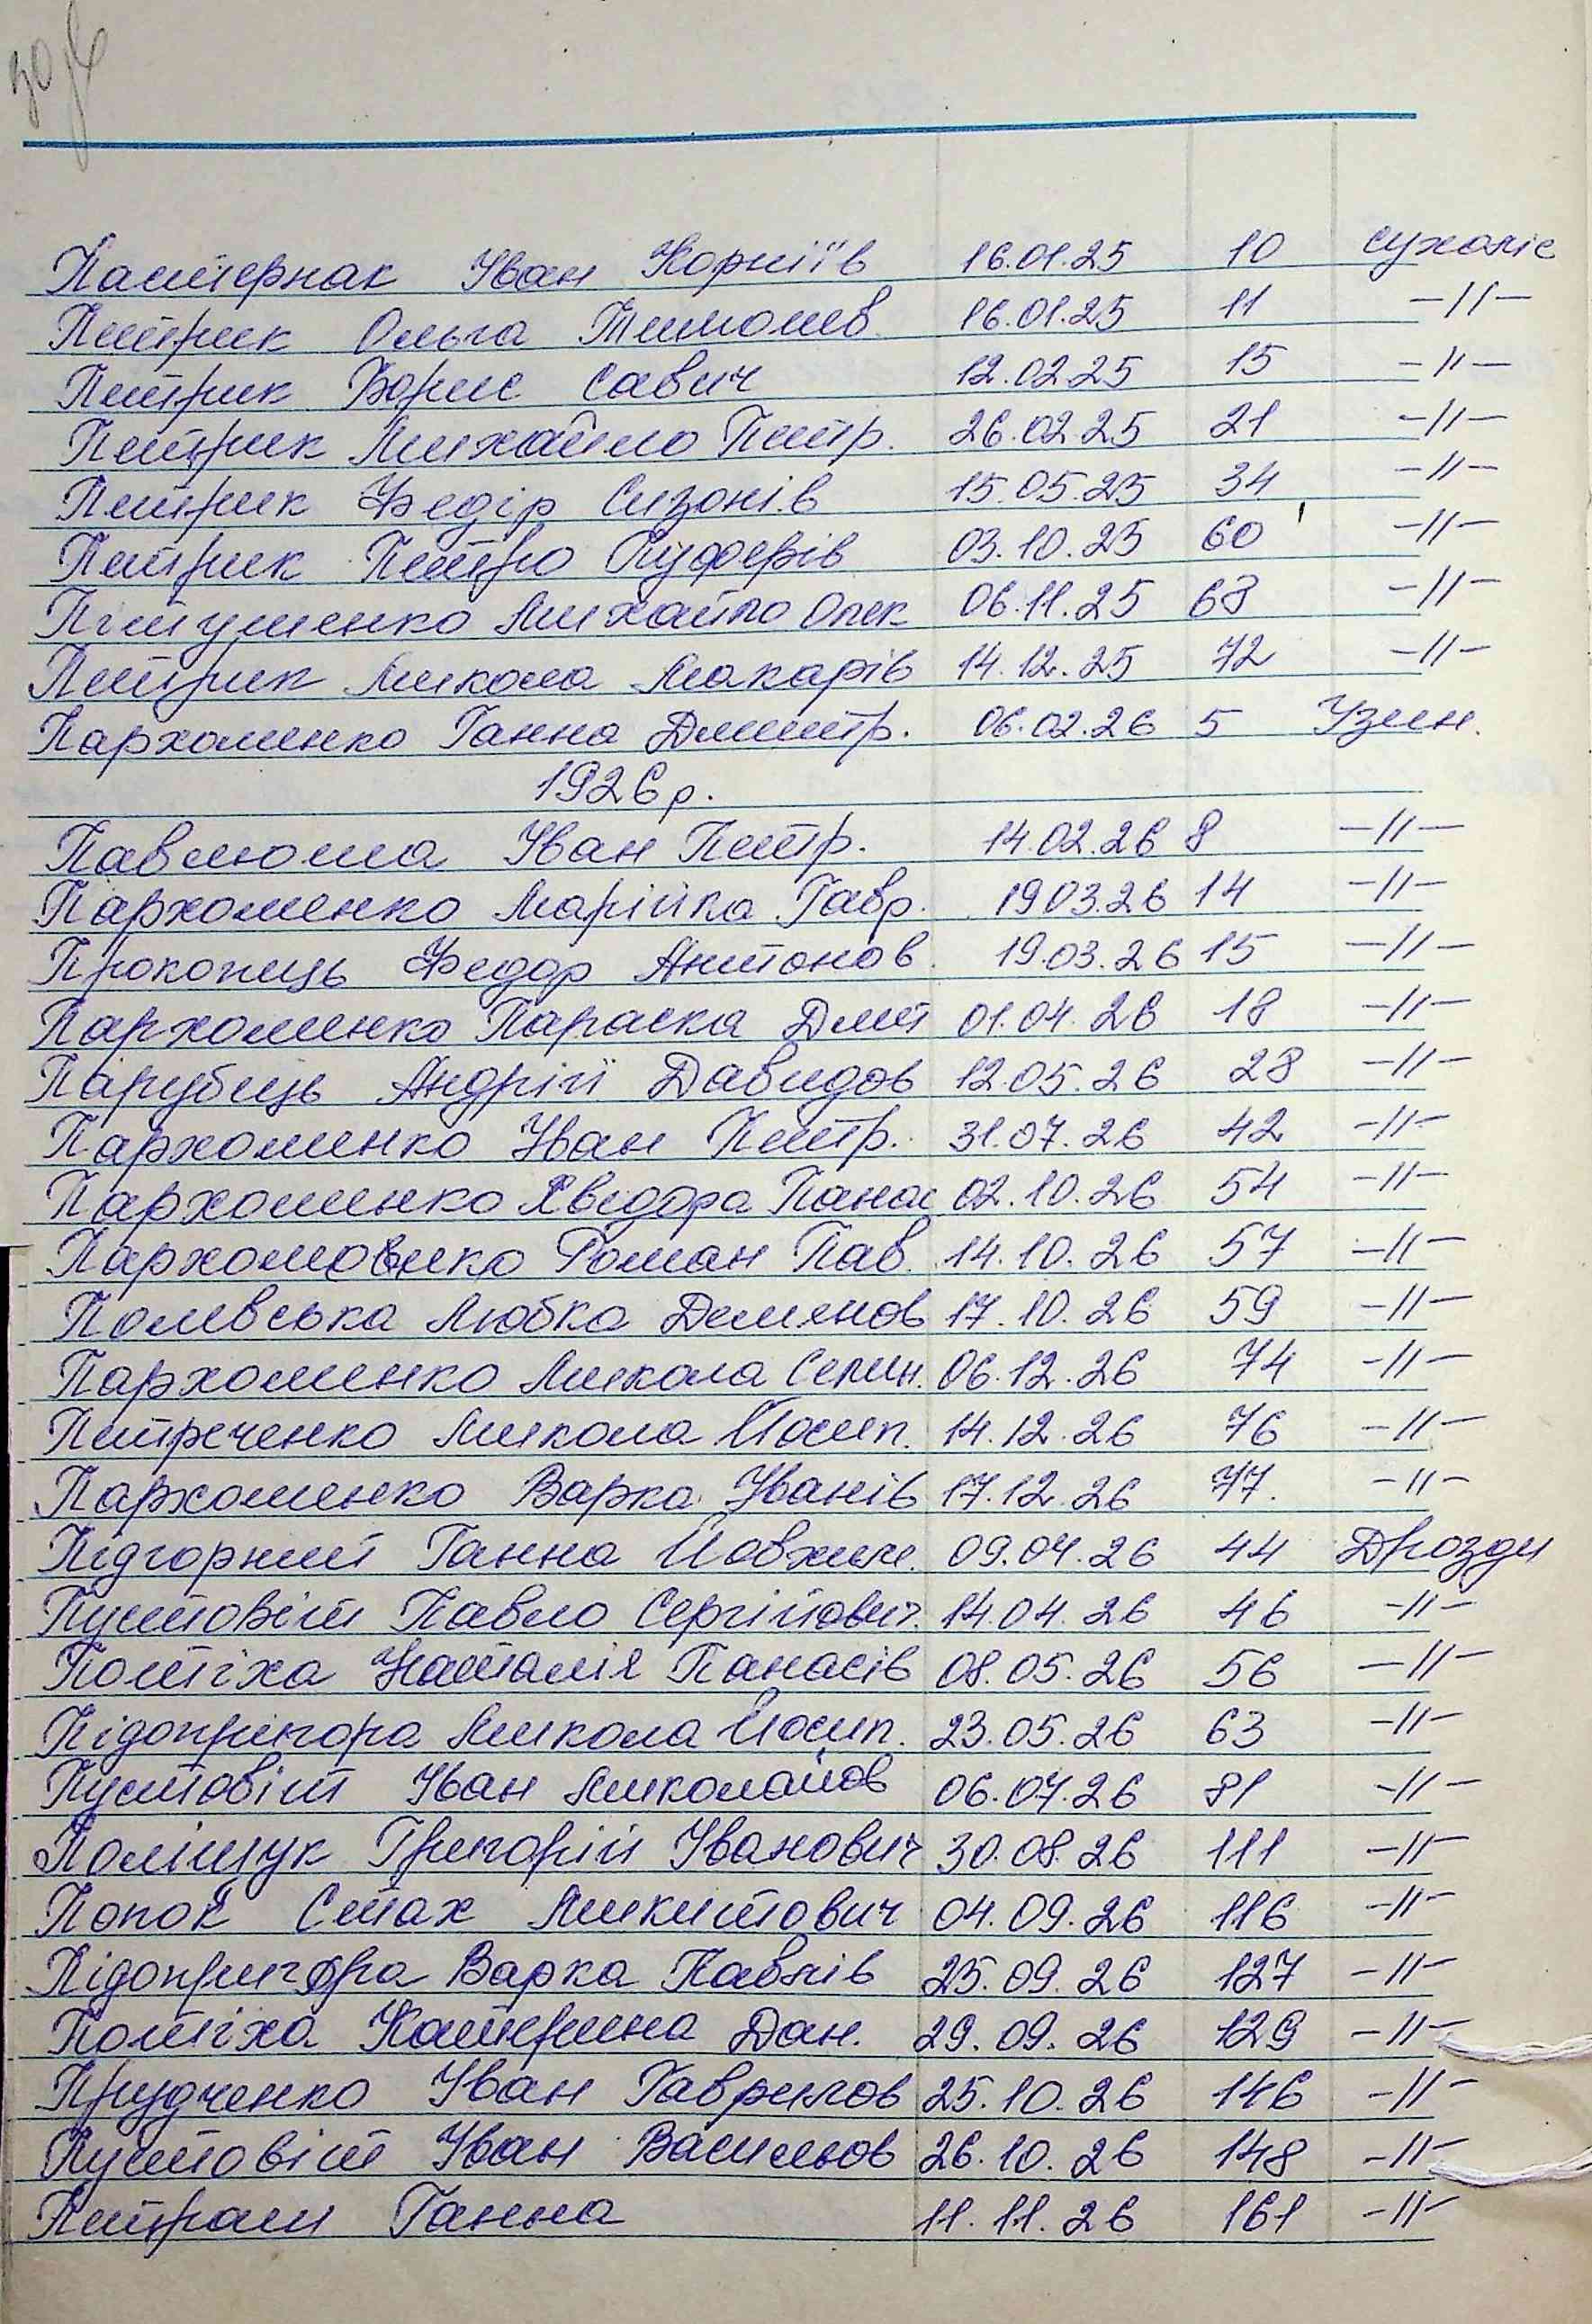 Пастернак Іван Корніїв 16.01.25 10 Сухоліс
Петрик Ольга Тимошев 16.01.25 11 -//-
Петрик Борис Савич 12.02.25 15 -//-
Петрик Михайло Петр. 26.02.25 21 -//-
Петрик Федір Сизонів 15.05.25 34 -//-
Петрик Петро Оуферів 03.10.25 60 -//-
Пітушенко Михайло Олек 06.11.25 63 -//-
Петрик Микола Макарів 14.12.25 72 -//-
Пархоменко Ганна Дмитр. 06.02.26 5 Узин.
1926 р.
Павлюша Іван Петр. 14.02.26 8 -//-
Пархоменко Марійка Гавр. 19.03.26 14 -//-
Прокопець Федор Антонов. 19.03.26 15 -//-
Пархоменко Параска Дмит 01.04.26 18 -//-
Парубець Андрій Давидов 12.05.26 28 -//-
Пархоменко Іван Петр. 31.07.26 42 -//-
Пархоменко Хведора Панас 02.10.26 54 -//-
Пархомовико Роман Пав. 14.10.26 57 -//-
Полевська Любка Демянов 17.10.26 59 -//-
Пархоменко Микола Семин. 06.12.26 74 -//-
Петреченко Микола Йосип. 14.12.26 76 -//-
Пархоменко Варка Іванів 17.12.26 77. -//-
Підгорний Ганна Йовхим. 09.04.26 44 Дрозди
Пустовіт Павло Сергійович. 14.04.26 46 -//-
Потіха Наталія Панасів 08.05.26 56 -//-
Підопрігора Микола Йосип. 23.05.26 63 -//-
Пустовіт Іван Миколайов 06.07.26 81 -//-
Поліщук Григорій Іванович 30.08.26 111 -//-
Попок Стах Микитович 04.09.26 116 -//-
Підопригора Варка Павлів 25.09.26 127 -//-
Потіха Катерина Дан. 29.09.26 129 -//-
Прудченко Іван Гаврилов 25.10.26 146 -//-
Пустовіт Іван Васильов 26.10.26 148 -//-
Петраш Ганна 11.11.26 161 -//-